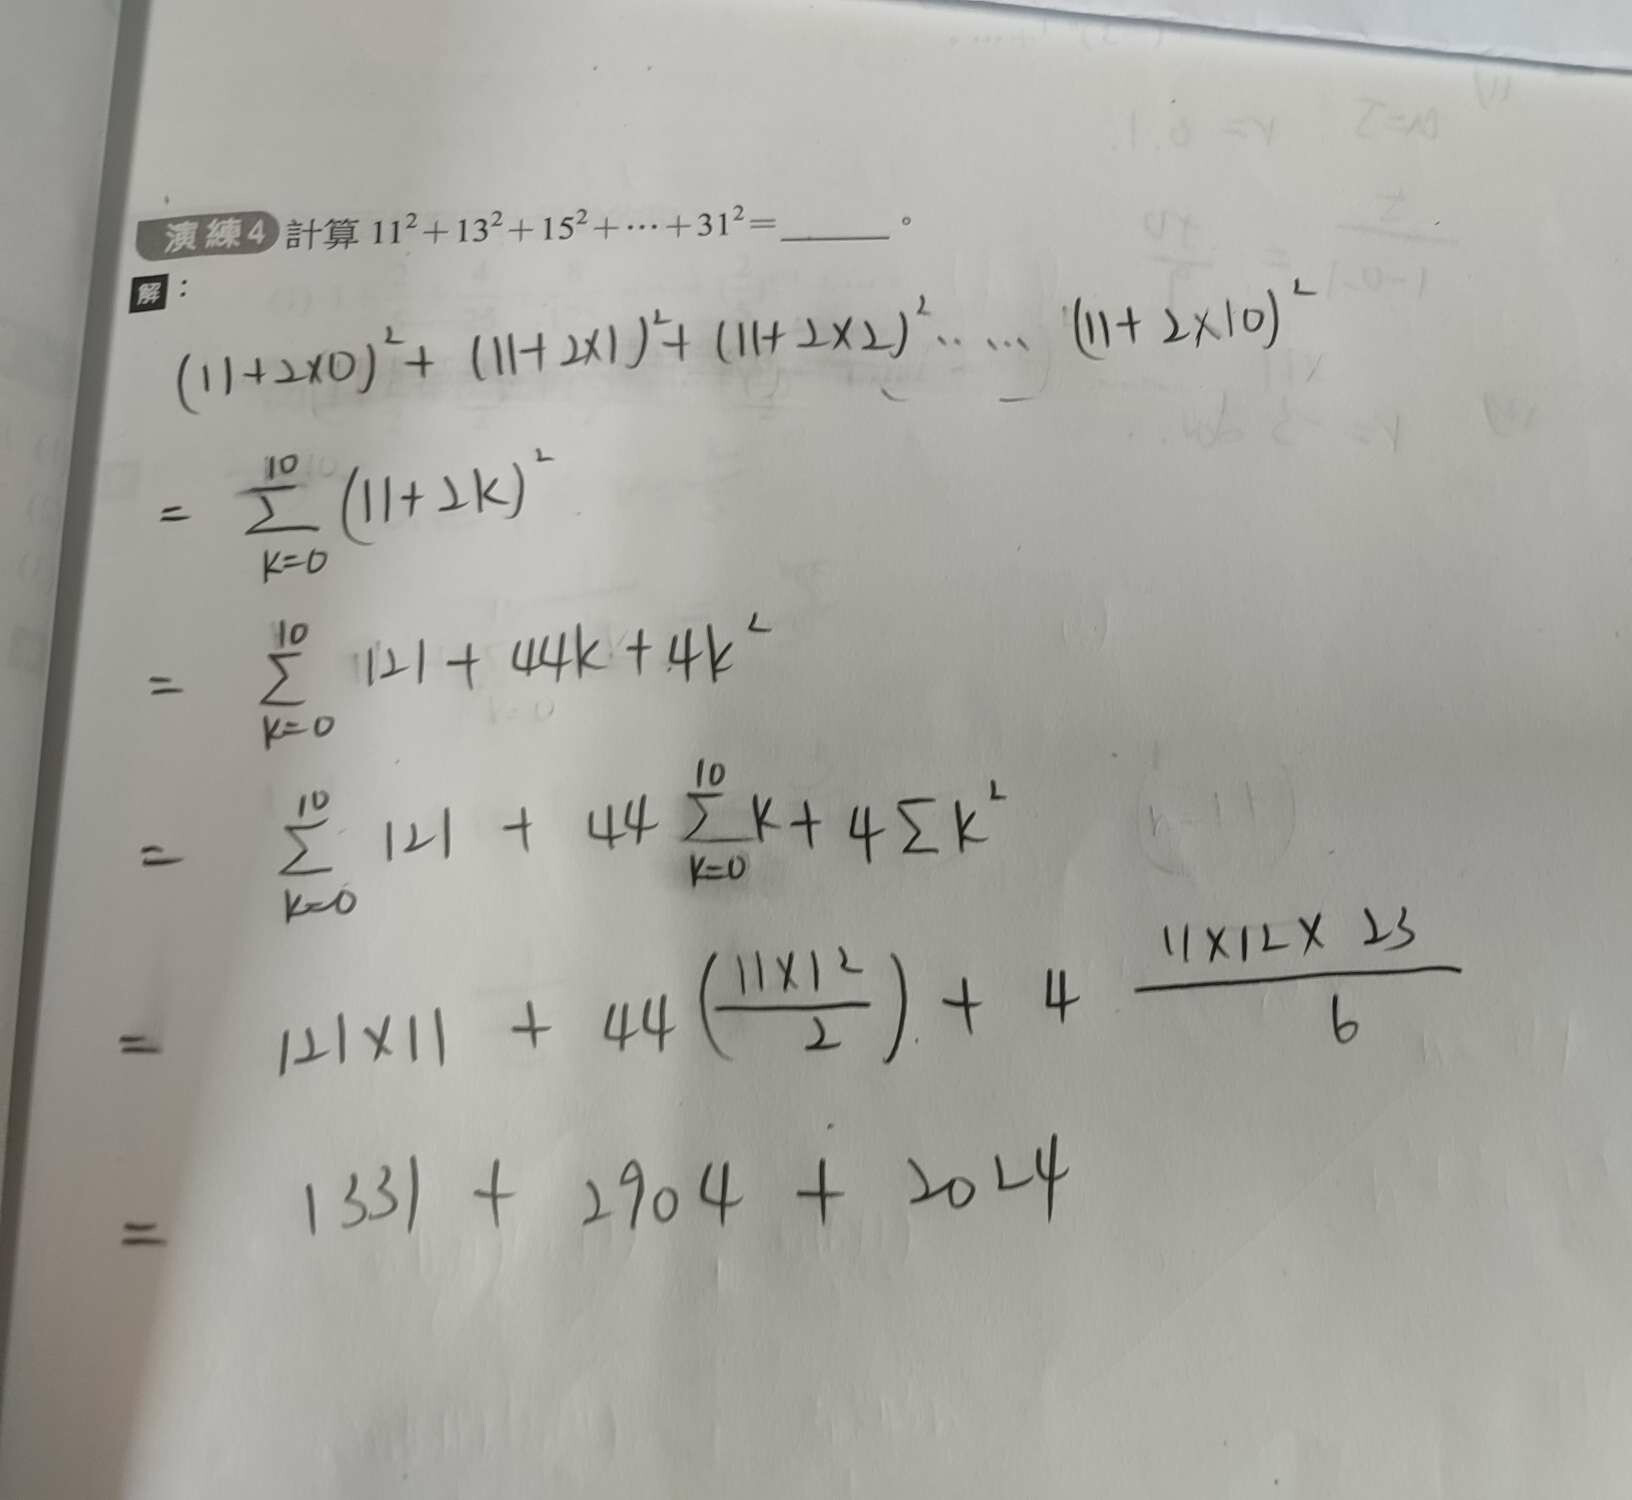 演練4 計算 11²+13²+15²+⋯+31²=______。
解：
(11+2×0)²+ (11+2×1)²+ (11+2×2)² ⋯⋯ (11+2×10)²
= \sum_{k=0}^{10} (11+2k)²
= \sum_{k=0}^{10} 121+44k+4k²
= \sum_{k=0}^{10} 121 + 44 \sum_{k=0}^{10} k + 4 Σ k²
= 121×11 + 44 (\frac{11×12}{2}) + 4 \frac{11×12×23}{6}
= 1331 + 2904 + 2024